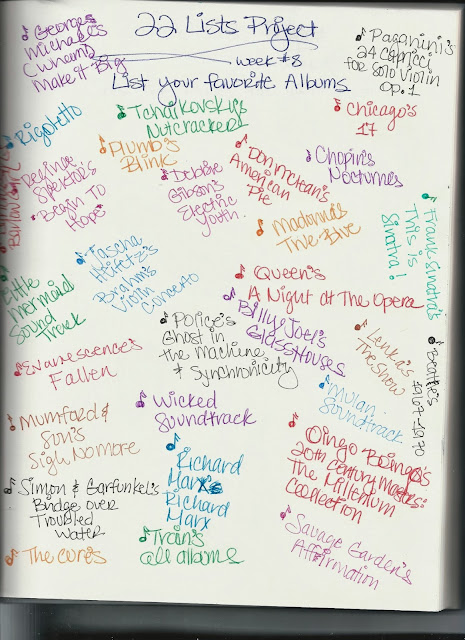 22 Lists Project
week #8
List your favorite Albums
George
Michael's
(Wham)
Make it Big
Paganini's
24 Capricci
for solo Violin
op. 1
Rigoletto
Tchaikovsky's
Nutcracker
Chicago's
17
Plumb's
Blink
Regina
Spektor's
Begin To
Hope
Debbie
Gibson's
Electric
Youth
Don McLean's
American
Pie
Chopin's
Nocturnes
Madonna's
True Blue
Frank Sinatra's
This is
Sinatra!
Little
Mermaid
Sound
Track
Jascha
Heifetz's
Brahm's
Violin
Concerto
Queen's
A Night at The Opera
Police's
Ghost in
the Machine
& Synchronicity
Billy Joel's
Glass Houses
Lenka's
The Show
Breathe's
1967-1970
Evanescence's
Fallen
Wicked
Soundtrack
Mulan
Soundtrack
Mumford &
Son's
Sigh No More
Oingo Boingo's
20th Century Masters:
The Millenium
Collection
Simon & Garfunkel's
Bridge over
Troubled
Water
Richard
Marx's
Richard
Marx
Savage Garden's
Affirmation
The Cure's
Train's
all albums